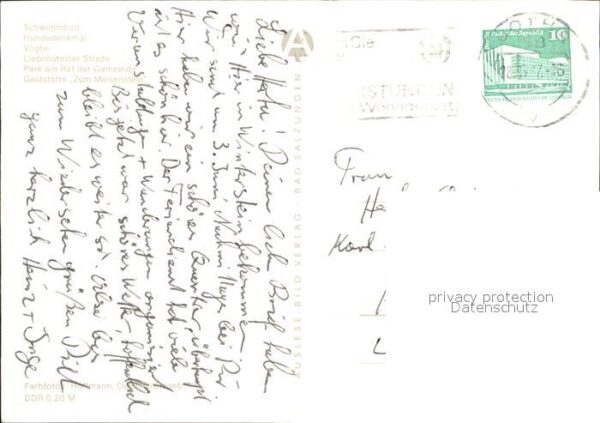 Schwimmbad
Hundedenkmal
Vogtei
Liebensteiner Straße
Park am Rat der Gemeinde
Gaststätte „Zum Meisenstein"
Liebe Herta! Deinen lieben Brief haben
wir hier in Winterstein bekommen.
Wir sind am 3. Juni Nachmittags bei
Hier haben wir ein schönes Quartier, überhaupt
ist es schön hier. Der Feriendienst hat viele
Veranstaltungen + Wanderungen organisiert
Bis jetzt war schönes Wetter, hoffentlich
bleibt es weiter so. Also bis
zum Wiedersehen grüßen Dich
ganz herzlich Heinz + Inge
Farbfotos: Hoffmann,
DDR 0,20 M
AUSLESE-BILD-VERLAG · BAD SALZUNGEN
Sie
STUNGEN
DDR
10
Palast der Republik
Frau
He
Karl
privacy protection
Datenschutz